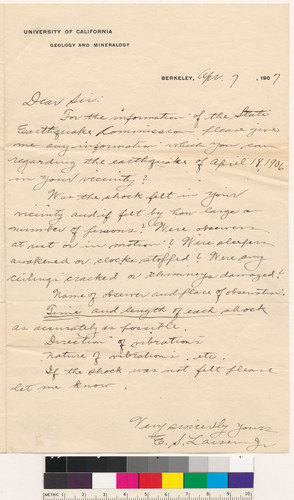 UNIVERSITY OF CALIFORNIA
GEOLOGY AND MINERALOGY
BERKELEY, Apr. 7, 1907
Dear Sir:
For the information of the State
Earthquake Commission please give
me any information which you can
regarding the earthquake of April 18, 1906
in your vicinity?
Was the shock felt in your
vicinity and if felt by how large a
number of persons? Were observers
at rest or in motion? Were sleepers
awakened or clocks stopped? Were any
ceilings cracked or chimneys damaged?
Name of observer and place of observation.
Time and length of each shock
as accurately as possible.
Direction of vibrations
Nature of vibrations, etc.
If the shock was not felt please
let me know.
Very sincerely yours
E. S. Larsen Jr
METRIC 1 2 3 4 5 6 7 8 9 10